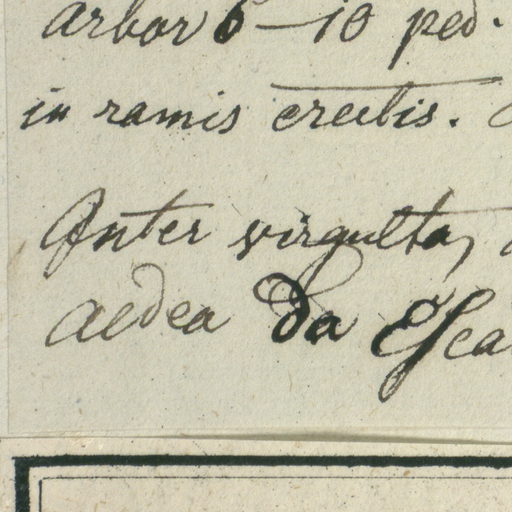 Arbor 6-10 ped.
in ramis erectis.
Inter virgulta,
aldea da Esca